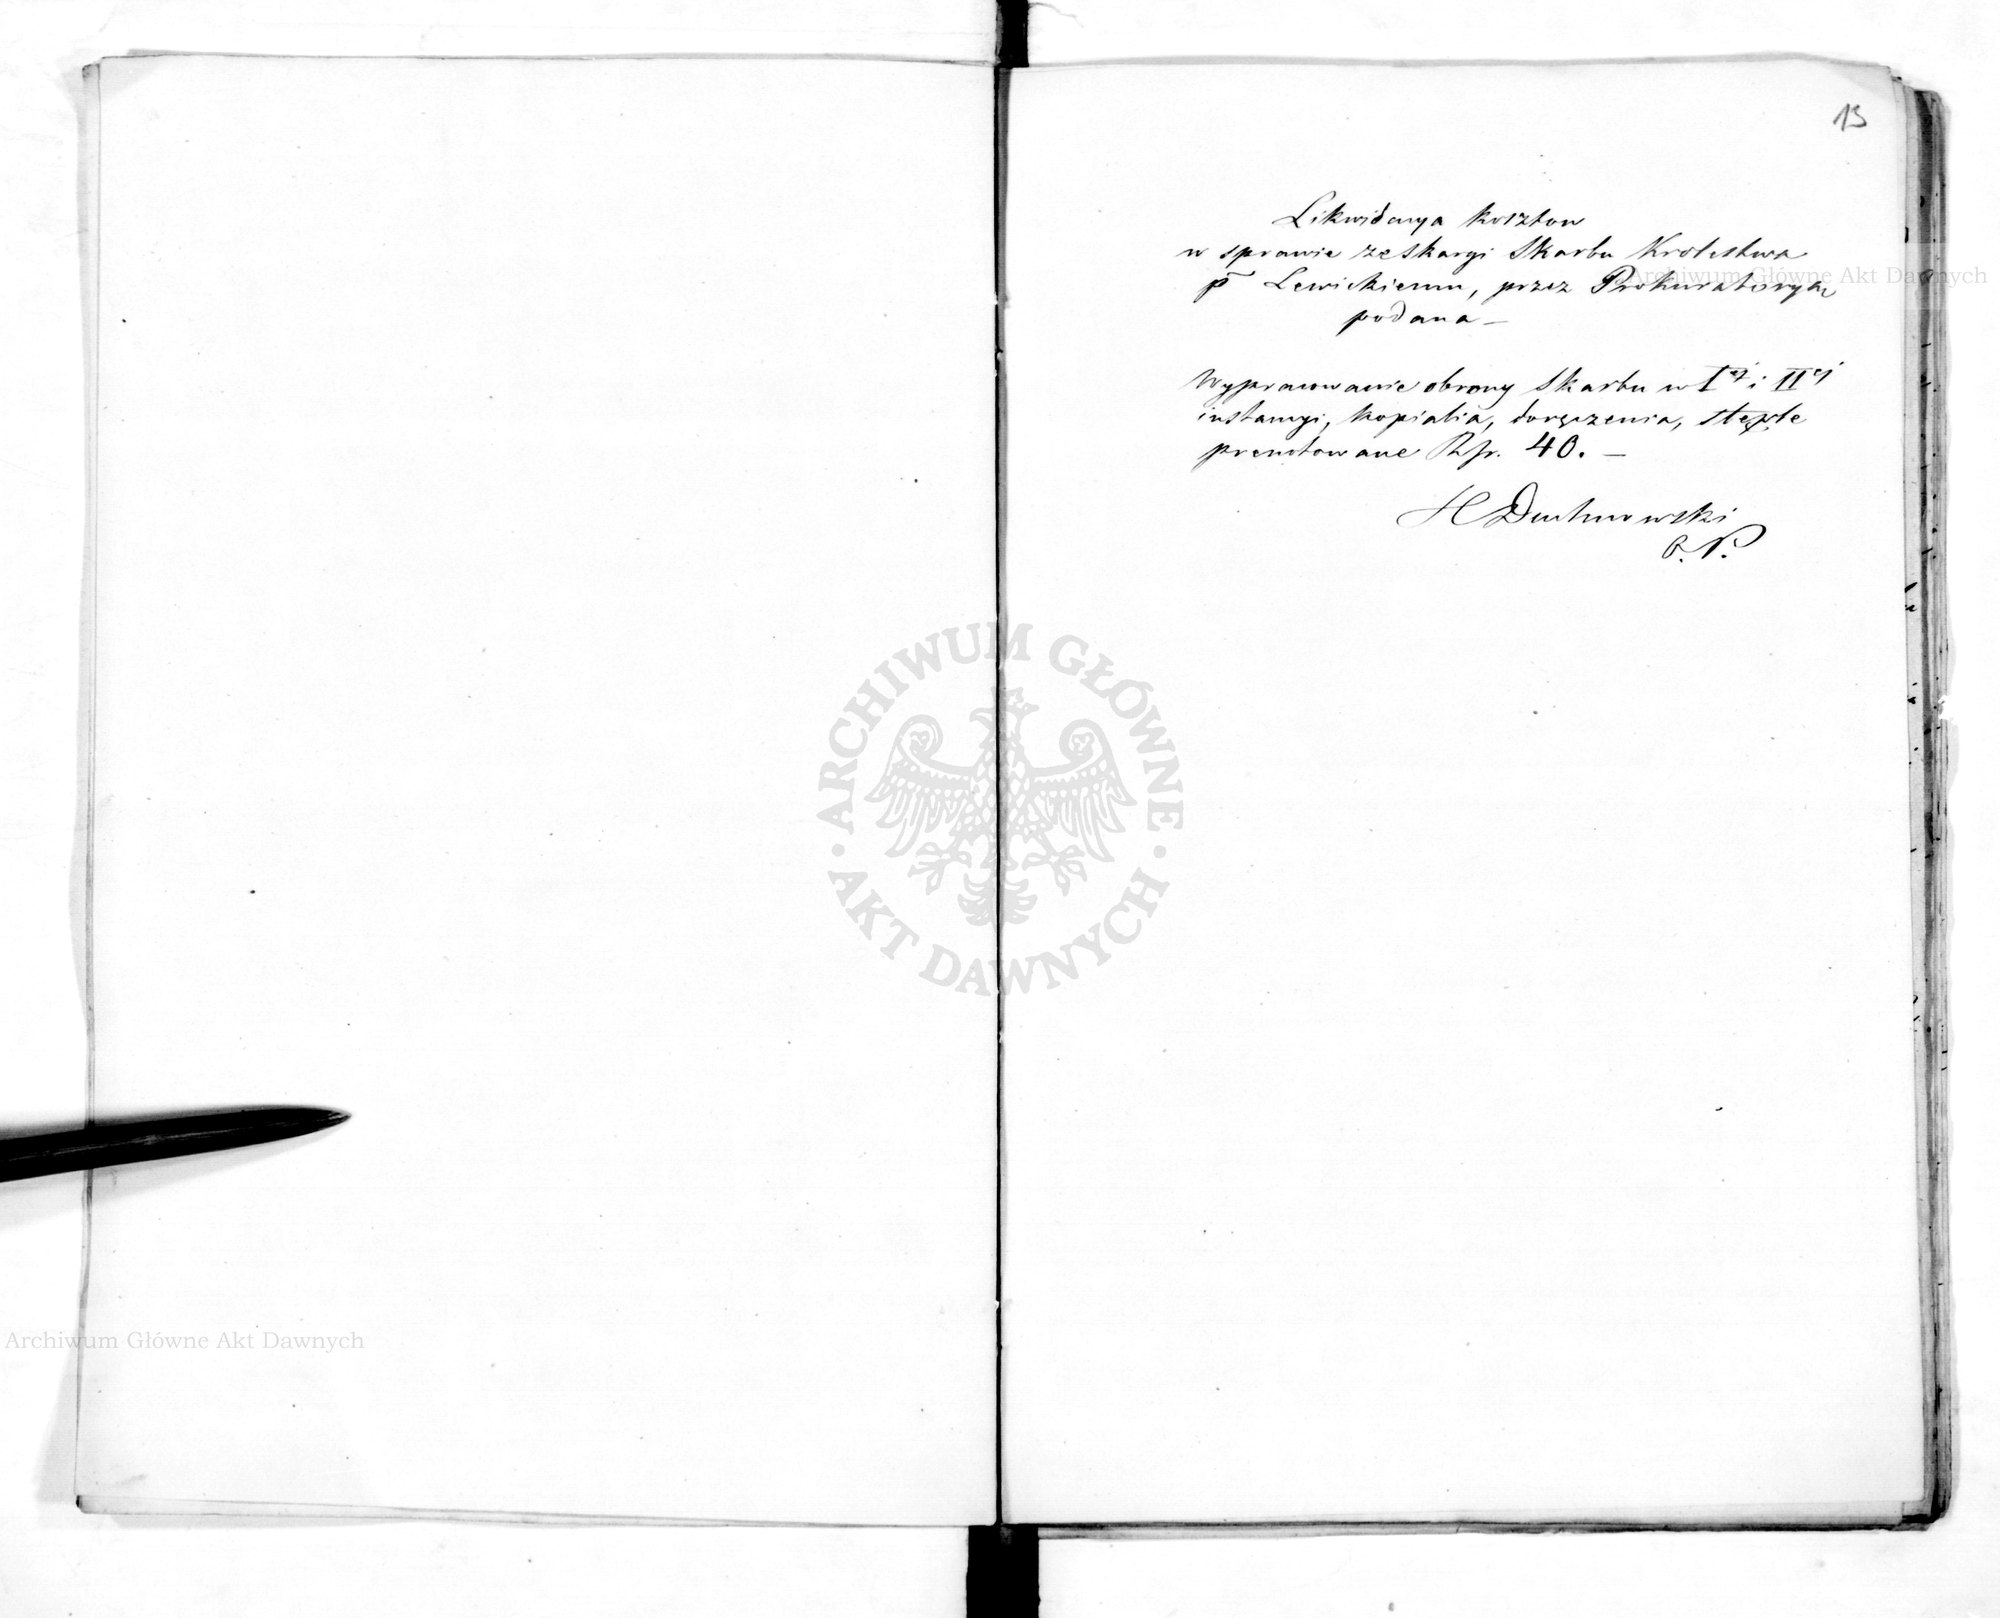 13
Likwidacya kosztow
w sprawie ze skargi Skarbu Krolestwa
p̄ Lewickiemu, przez Prokuratoryą
podana —
Wypracowanie obrony Skarbu w Iej i IIej
instancyi, kopialia, doręczenia, stęple
prenotowane Rsr. 40. —
H Duchnowski
O. P.
ARCHIWUM GŁÓWNE · AKT DAWNYCH ·
Archiwum Główne Akt Dawnych
Archiwum Główne Akt Dawnych